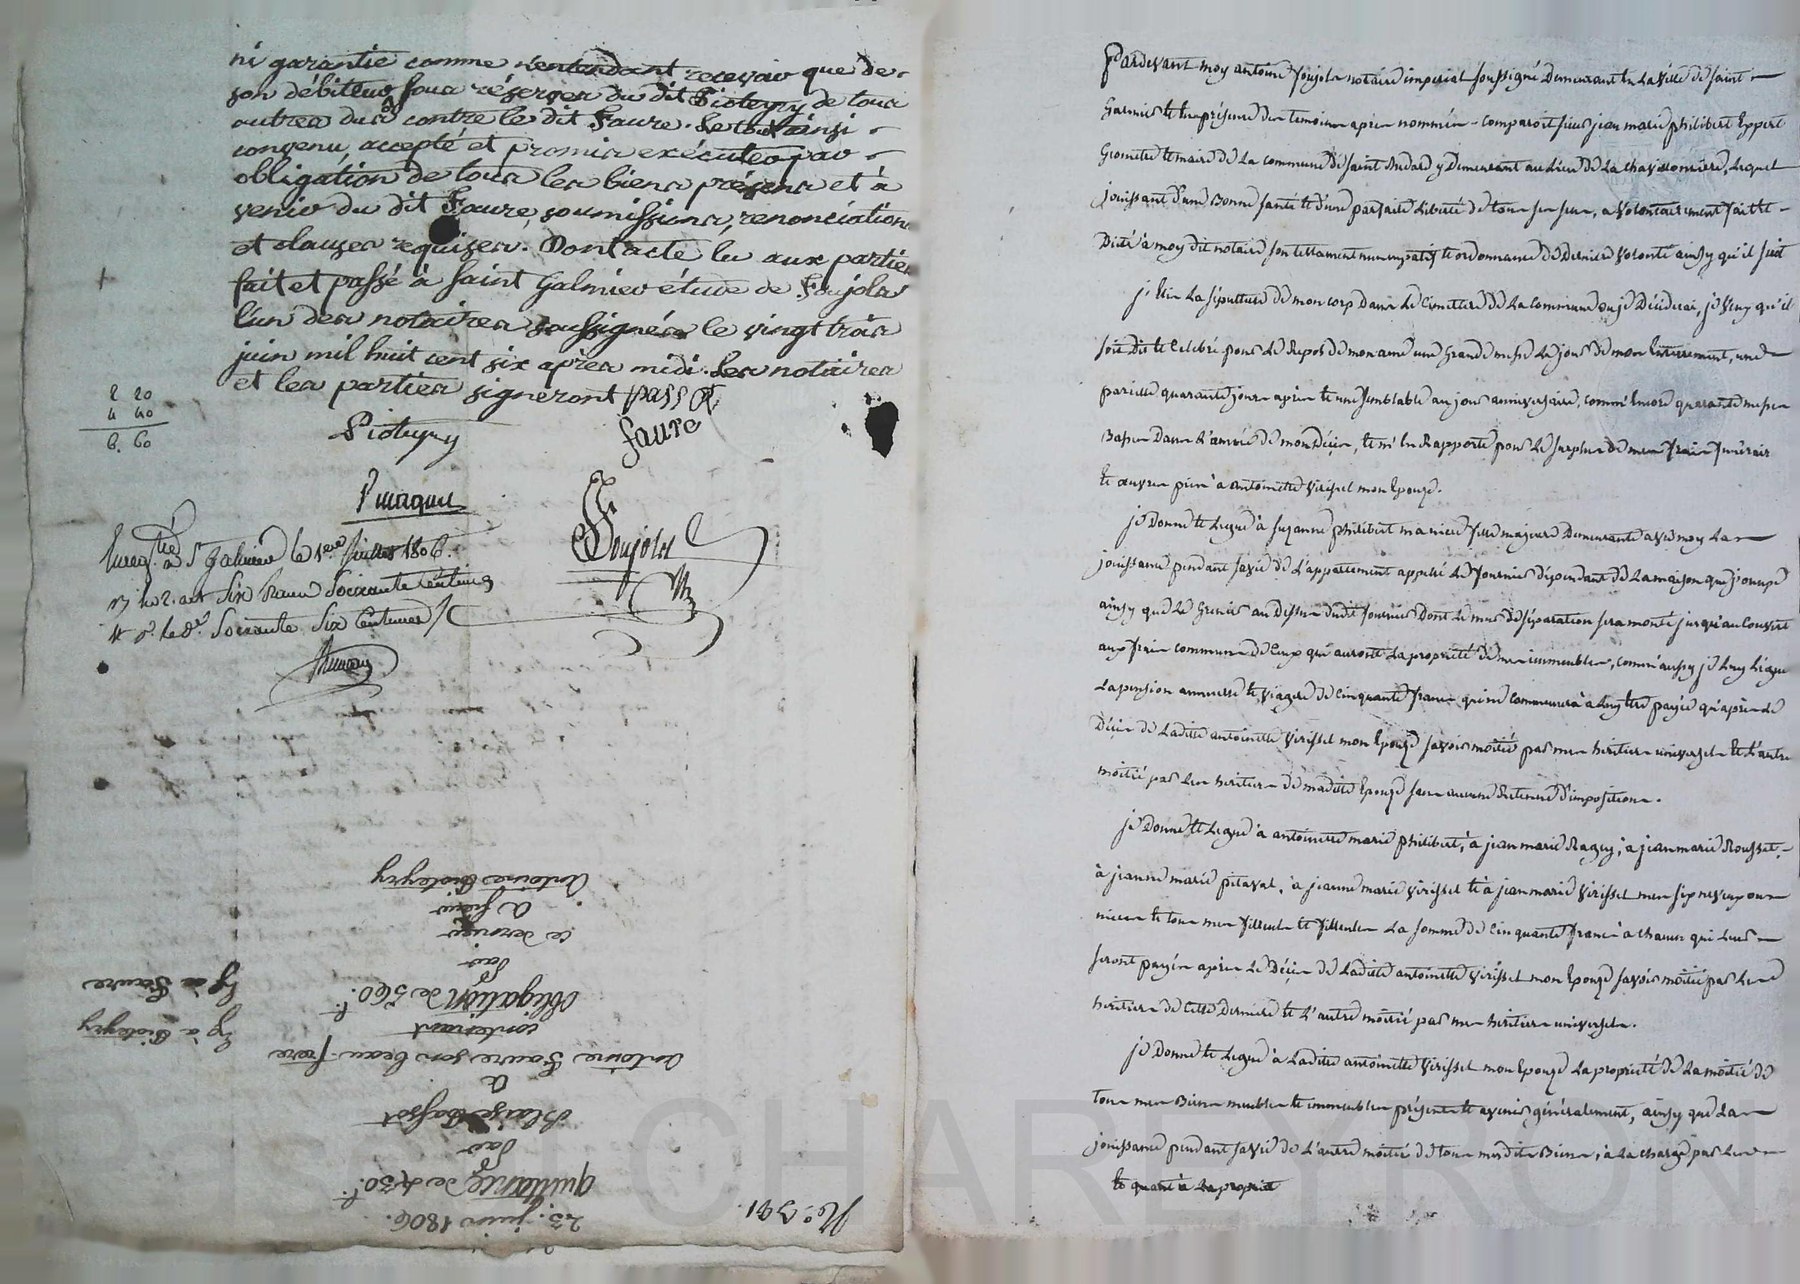 ni garantie comme n'entendant recevoir que de
son débiteur sous réserves du dit Pioteyry de tous
autres dus contre le dit Faure. Le tout ainsi
convenu, accepté et promis exécuter par
obligation de tous les biens présens et à
venir du dit Faure, soumissions, renonciations
et clauses requises. Dont acte lu aux parties
fait et passé à Saint Galmier étude de Foujols
l'un des notaires soussignés le vingt trois
juin mil huit cent six après midi. Les notaires
et les parties signeront
2 20
4 40
6. 60
Pioteyry
faure
Foujols
Enreg.tré à St Galmier le 1er juillet 1806.
six francs soixante centimes
soixante six centimes
N.o 391.
23. juin 1806.
quittance de 430.f
par
Blaize
à
Antoine Faure son beau-frère
contenant
obligation de 560.f
par
ce dernier
à sieur
Antoine Pioteyry
Ex à Pioteyry
Ex à Faure
Pardevant moy antoine foujols notaire imperial soussigné Demeurant en la ville de Saint
Galmier et en présence des temoins après nommés comparoit sieur jean marie philibert Expert
Geometre et maire de la commune de saint Medard y Demeurant au Lieu de La Chavassonniere, Lequel
jouissant d'une Bonne santé et d'une parfaite Liberté de tous ses sens, a volontairement fait et
Dicté à moy dit notaire son testament nuncupatif et ordonnance de Derniere volonté ainsy qu'il suit
j'Elis La sépulture de mon corp dans le Cimetiere de La Commune ou je Décéderai, je veux qu'il
soit dit et Célébré pour le Repos de mon ame une Grande messe le jour de mon Enterrement, une
pareille quarante jours après et une semblable au jour anniversaire, comme Encore quarante messes
Basses Dans L'année de mon Décès, et m'en Rapporte pour le surplus de mes frais funérair
et œuvres pies à antoinette Virissel mon Epouze.
je Donne et Legue à suzanne philibert ma niece fille majeure Demeurante avec moy La
jouissance pendant sa vie de L'appartement appellé Le fournier dépendant de La maison que j'occupe
ainsy que le Grenier au Dessus dudit fournier Dont Le mur de séparation sera monté jusqu'au Couvert
aux frais communs de Ceux qui auront La propriété de mes immeubles, comm'aussy je Luy Legue
La pension annuelle et viagere de cinquante francs qui ne Commencera à Luy Etre payée qu'après Le
Décès de Ladite antoinette Virissel mon Epouze savoir moitié par mes heritiers universels et L'autre
moitié par Les heritiers de madite Epouze sans aucune Retenue d'impositions.
je Donne et Legue à antoinette marie philibert, à jean marie Ragey, à jean marie Rousset,
à jeanne marie pitaval, à jeanne marie Virissel et à jean marie Virissel mes six neveux ou
nieces et tous mes filleuls et filleules La somme de Cinquante francs à chacun qui Leur
seront payés après Le Décès de Ladite antoinette Virissel mon Epouze savoir moitié par Les
heritiers de Cette Derniere et L'autre moitié par mes heritiers universels.
je Donne et Legue à Ladite antoinette Virissel mon Epouze La propriété de La moitié de
tous mes Biens meubles et immeubles présents et avenir généralement, ainsy que La
jouissance pendant sa vie de L'autre moitié de tous mesdits Biens, à La charge par Les
et quant à La propriété
Pascal CHARLYRON